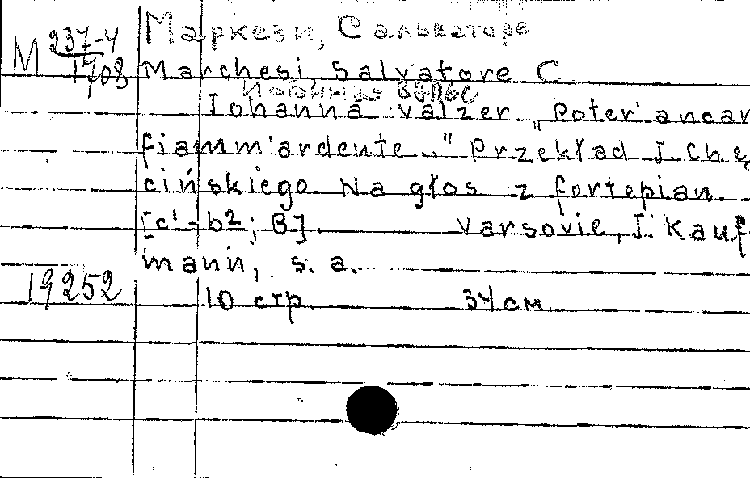 М 237-4
1708
Маркези, Сальваторе
Marchesi, Salvatore C.
Iohanna valzer „Poter' ancar
fiamm'ardente..." Przekład I. Chę
cińskiego. Na głos z fortepian.
[c¹-b²; B] Varsovie, I. Kauf
mann, s. a.
19252
10 стр. 34 см